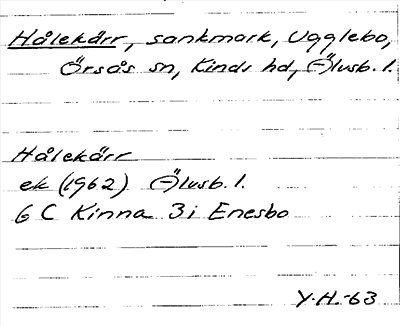 Hålekärr, sankmark, Ugglebo,
Örsås sn, Kinds hd, Älvsb. l.
Hålekärr
ek (1962) Älvsb. l.
6 C Kinna 3i Enesbo
Y.H.-63